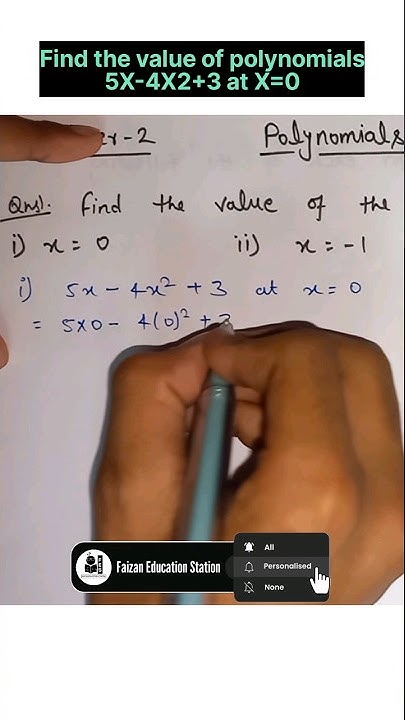 Find the value of polynomials
5X-4X2+3 at X=0
-2 Polynomials
Qns1. Find the value of the
i) x = 0 ii) x = -1
i) 5x - 4x² + 3 at x = 0
= 5×0 - 4(0)² + 3
Faizan Education Station
All
Personalised
None